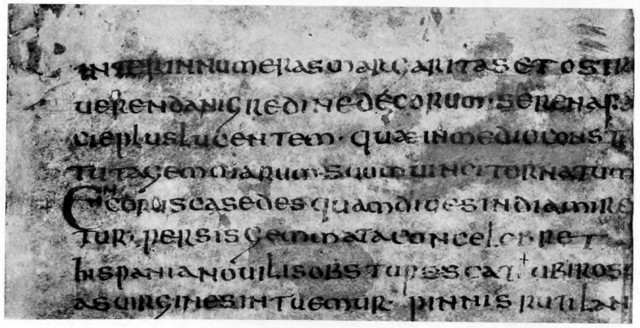 interinnumerasmargaritasetostr
uerendanigredinedecorum·serenafa
ciepluslucentem·quæinmedioconsti
tutagemmarum·suumuincitornatum
Encoruscasedesquamdiuesindiamire
tur·persisgemmataconcelebret
hispanianouilisobstupescat·ubiros
asuirginesintuemur·pinnisrutilan